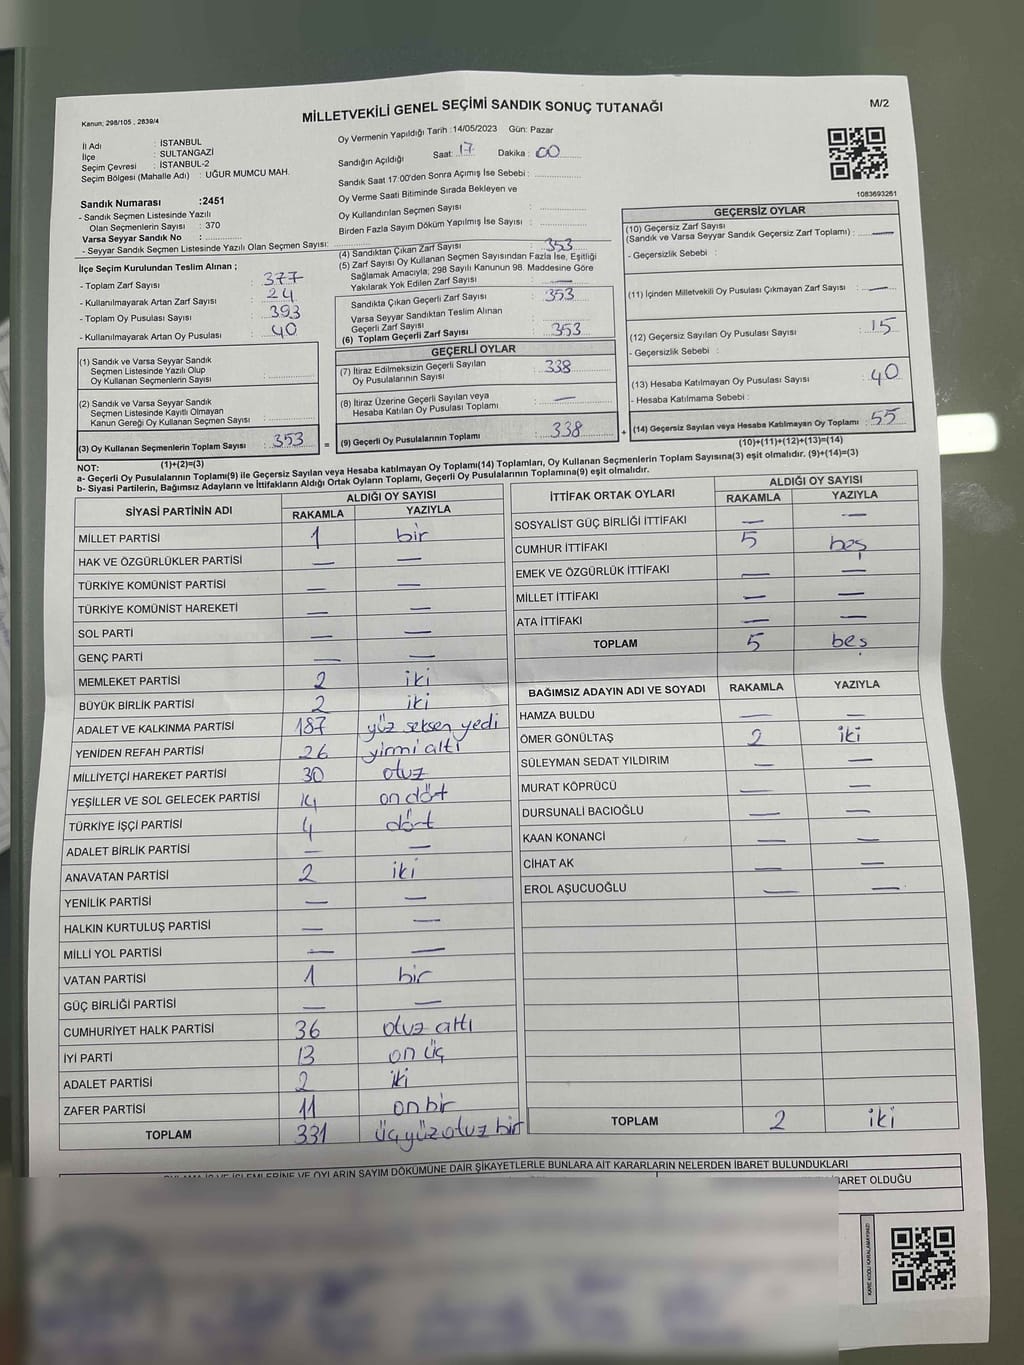 MİLLETVEKİLİ GENEL SEÇİMİ SANDIK SONUÇ TUTANAĞI
M/2
Kanun; 298/105 , 2839/4
İl Adı : İSTANBUL
İlçe : SULTANGAZİ
Seçim Çevresi : İSTANBUL-2
Seçim Bölgesi (Mahalle Adı) : UĞUR MUMCU MAH.
Sandık Numarası :2451
- Sandık Seçmen Listesinde Yazılı
Olan Seçmenlerin Sayısı : 370
Varsa Seyyar Sandık No :
- Seyyar Sandık Seçmen Listesinde Yazılı Olan Seçmen Sayısı:
İlçe Seçim Kurulundan Teslim Alınan ;
- Toplam Zarf Sayısı : 377
- Kullanılmayarak Artan Zarf Sayısı : 24
- Toplam Oy Pusulası Sayısı : 393
- Kullanılmayarak Artan Oy Pusulası : 40
(1) Sandık ve Varsa Seyyar Sandık
Seçmen Listesinde Yazılı Olup
Oy Kullanan Seçmenlerin Sayısı :
(2) Sandık ve Varsa Seyyar Sandık
Seçmen Listesinde Kayıtlı Olmayan
Kanun Gereği Oy Kullanan Seçmen Sayısı :
(3) Oy Kullanan Seçmenlerin Toplam Sayısı : 353
(1)+(2)=(3)
Oy Vermenin Yapıldığı Tarih :14/05/2023 Gün: Pazar
Sandığın Açıldığı Saat: 17 Dakika : 00
Sandık Saat 17:00'den Sonra Açımış İse Sebebi :
Oy Verme Saati Bitiminde Sırada Bekleyen ve
Oy Kullandırılan Seçmen Sayısı :
Birden Fazla Sayım Döküm Yapılmış İse Sayısı :
(4) Sandıktan Çıkan Zarf Sayısı : 353
(5) Zarf Sayısı Oy Kullanan Seçmen Sayısından Fazla İse, Eşitliği
Sağlamak Amacıyla; 298 Sayılı Kanunun 98. Maddesine Göre
Yakılarak Yok Edilen Zarf Sayısı : —
Sandıkta Çıkan Geçerli Zarf Sayısı : 353
Varsa Seyyar Sandıktan Teslim Alınan
Geçerli Zarf Sayısı :
(6) Toplam Geçerli Zarf Sayısı : 353
GEÇERLİ OYLAR
(7) İtiraz Edilmeksizin Geçerli Sayılan
Oy Pusulalarının Sayısı : 338
(8) İtiraz Üzerine Geçerli Sayılan veya
Hesaba Katılan Oy Pusulası Toplamı : —
= (9) Geçerli Oy Pusulalarının Toplamı : 338 +
1083693261
GEÇERSİZ OYLAR
(10) Geçersiz Zarf Sayısı
(Sandık ve Varsa Seyyar Sandık Geçersiz Zarf Toplamı) : —
- Geçersizlik Sebebi :
(11) İçinden Milletvekili Oy Pusulası Çıkmayan Zarf Sayısı : —
(12) Geçersiz Sayılan Oy Pusulası Sayısı : 15
- Geçersizlik Sebebi :
(13) Hesaba Katılmayan Oy Pusulası Sayısı : 40
- Hesaba Katılmama Sebebi :
(14) Geçersiz Sayılan veya Hesaba Katılmayan Oy Toplamı : 55
(10)+(11)+(12)+(13)=(14)
NOT:
a- Geçerli Oy Pusulalarının Toplamı(9) ile Geçersiz Sayılan veya Hesaba katılmayan Oy Toplamı(14) Toplamları, Oy Kullanan Seçmenlerin Toplam Sayısına(3) eşit olmalıdır. (9)+(14)=(3)
b- Siyasi Partilerin, Bağımsız Adayların ve İttifakların Aldığı Ortak Oyların Toplamı, Geçerli Oy Pusulalarının Toplamına(9) eşit olmalıdır.
SİYASİ PARTİNİN ADI ALDIĞI OY SAYISI
RAKAMLA YAZIYLA
MİLLET PARTİSİ 1 bir
HAK VE ÖZGÜRLÜKLER PARTİSİ — —
TÜRKİYE KOMÜNİST PARTİSİ — —
TÜRKİYE KOMÜNİST HAREKETİ — —
SOL PARTİ — —
GENÇ PARTİ — —
MEMLEKET PARTİSİ 2 iki
BÜYÜK BİRLİK PARTİSİ 2 iki
ADALET VE KALKINMA PARTİSİ 187 yüz seksen yedi
YENİDEN REFAH PARTİSİ 26 yirmi altı
MİLLİYETÇİ HAREKET PARTİSİ 30 otuz
YEŞİLLER VE SOL GELECEK PARTİSİ 14 on dört
TÜRKİYE İŞÇİ PARTİSİ 4 dört
ADALET BİRLİK PARTİSİ — —
ANAVATAN PARTİSİ 2 iki
YENİLİK PARTİSİ — —
HALKIN KURTULUŞ PARTİSİ — —
MİLLİ YOL PARTİSİ — —
VATAN PARTİSİ 1 bir
GÜÇ BİRLİĞİ PARTİSİ — —
CUMHURİYET HALK PARTİSİ 36 otuz altı
İYİ PARTİ 13 on üç
ADALET PARTİSİ 2 iki
ZAFER PARTİSİ 11 onbir
TOPLAM 331 üçyüzotuz bir
İTTİFAK ORTAK OYLARI ALDIĞI OY SAYISI
RAKAMLA YAZIYLA
SOSYALİST GÜÇ BİRLİĞİ İTTİFAKI — —
CUMHUR İTTİFAKI 5 beş
EMEK VE ÖZGÜRLÜK İTTİFAKI — —
MİLLET İTTİFAKI — —
ATA İTTİFAKI — —
TOPLAM 5 beş
BAĞIMSIZ ADAYIN ADI VE SOYADI RAKAMLA YAZIYLA
HAMZA BULDU — —
ÖMER GÖNÜLTAŞ 2 iki
SÜLEYMAN SEDAT YILDIRIM — —
MURAT KÖPRÜCÜ — —
DURSUNALİ BACIOĞLU — —
KAAN KONANCİ — —
CİHAT AK — —
EROL AŞUCUOĞLU — —
TOPLAM 2 iki
İŞLEMLERİNE VE OYLARIN SAYIM DÖKÜMÜNE DAİR ŞİKAYETLERLE BUNLARA AİT KARARLARIN NELERDEN İBARET BULUNDUKLARI
İBARET OLDUĞU
KARE KODU KARALAMAYINIZ!